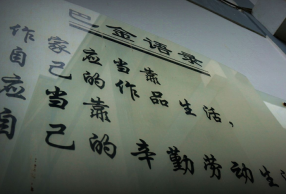 巴金语录
作家应当靠
自己的作品生活，
应当靠
自己的辛勤劳动生